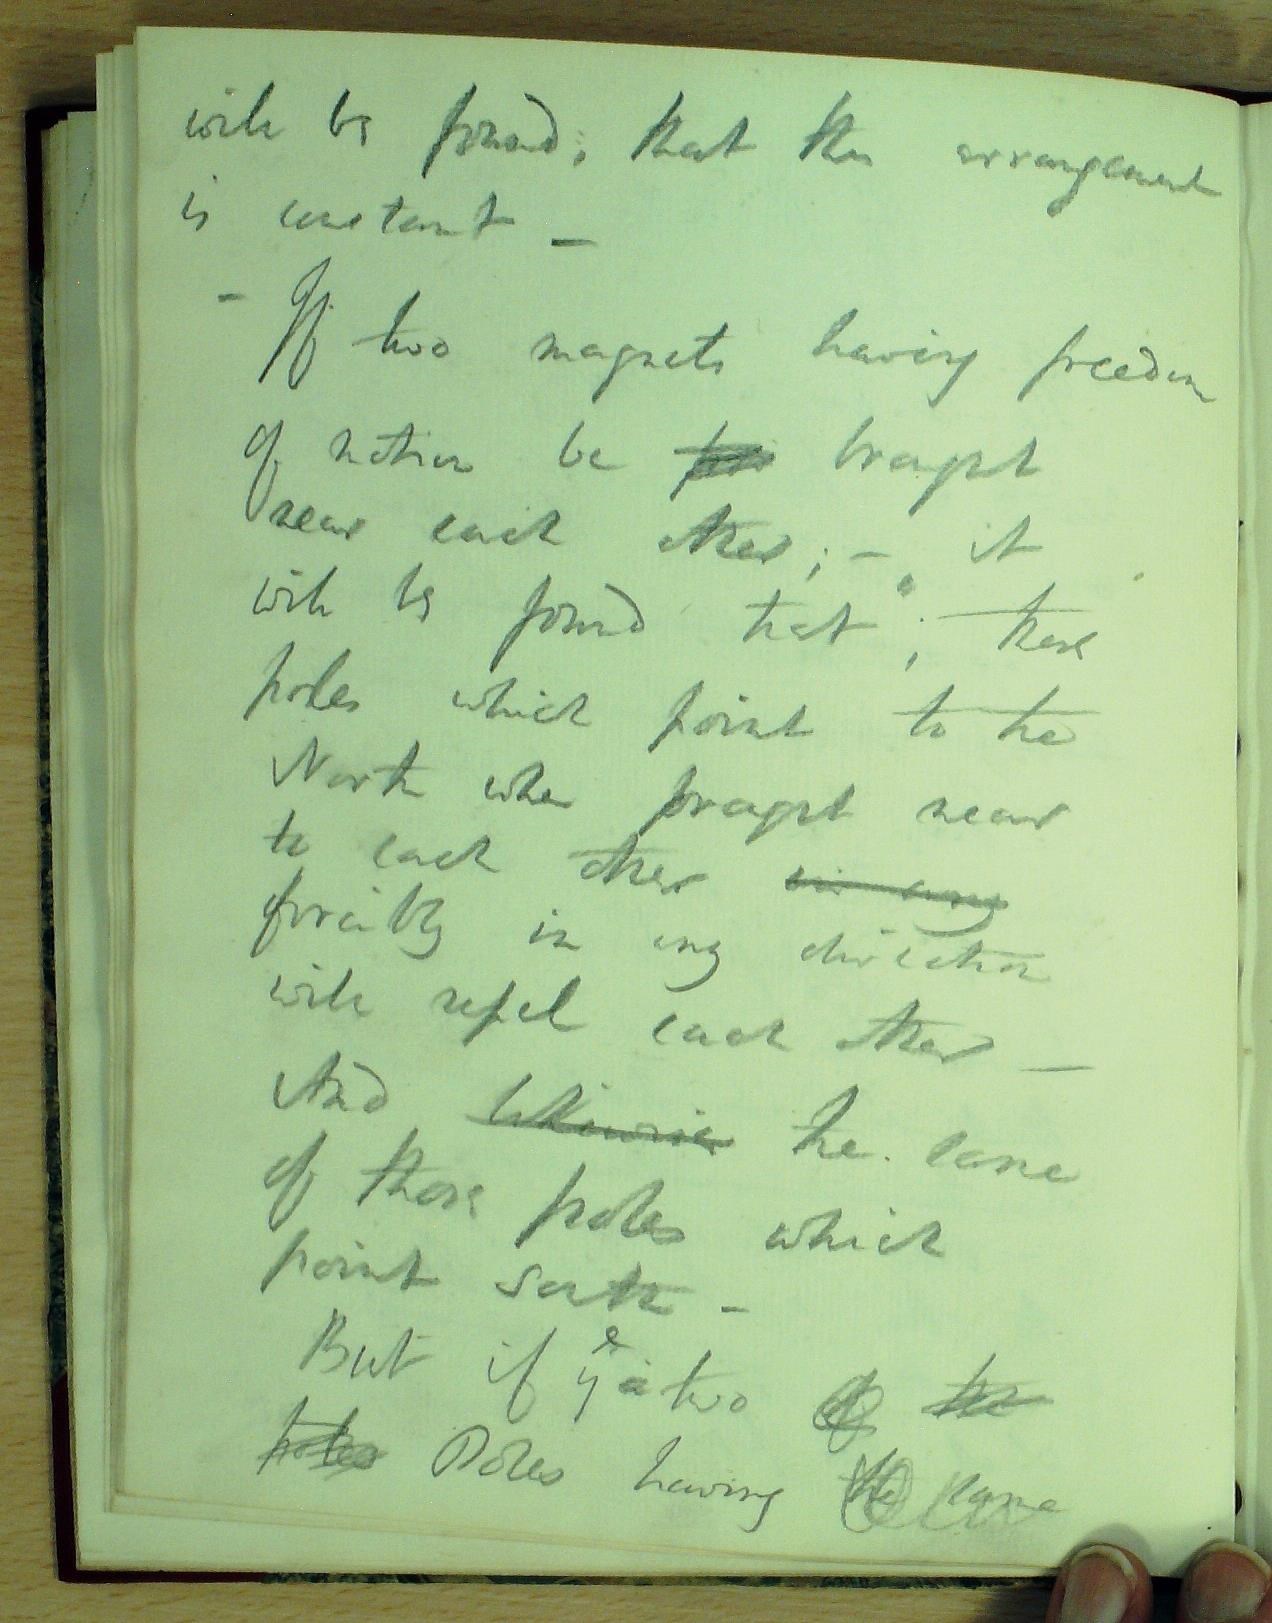 will be found, that the arrangement
is constant –
– If two magnets having freedom
of motion be brought
near each other ; – it
will be found that ; those
poles which point to the
North when brought near
to each other in any
forcibly in any direction
will repel each other –
And likewise the same
of those poles which
point South –
But if two of the
poles Poles having the same